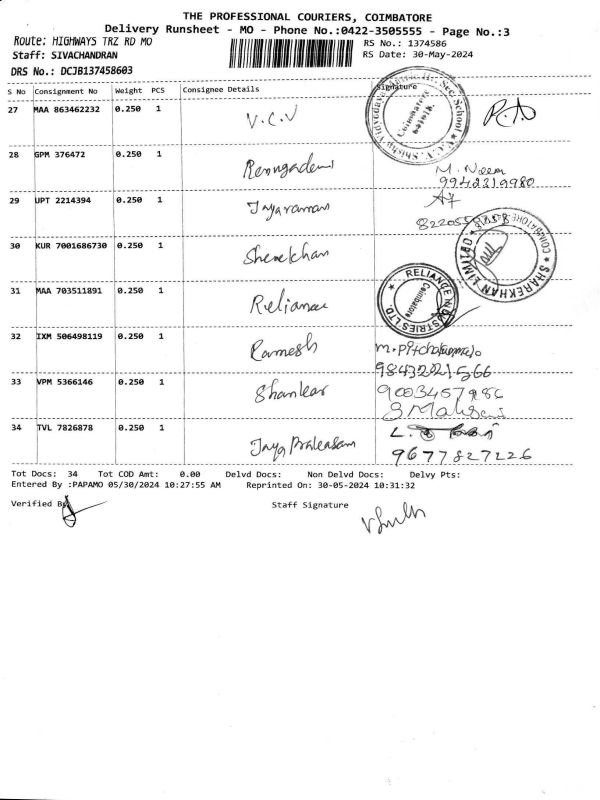 THE PROFESSIONAL COURIERS, COIMBATORE
Delivery Runsheet - MO - Phone No.:0422-3505555 - Page No.:3
Route: HIGHWAYS TRZ RD MO RS No.: 1374586
Staff: SIVACHANDRAN RS Date: 30-May-2024
DRS No.: DCJB137458603
S No Consignment No Weight PCS Consignee Details Signature
27 MAA 863462232 0.250 1 V.C.V
28 GPM 376472 0.250 1 M. Neem
9942319980
29 UPT 2214394 0.250 1 Jayaraman
30 KUR 7001686730 0.250 1 Sherekhan
COIMBATORE
SHAREKHAN LIMITED
31 MAA 703511891 0.250 1 Reliance
RELIANCE INDUSTRIES LTD.
Coimbatore
32 IXM 506498119 0.250 1 Ramesh
33 VPM 5366146 0.250 1 Shankar
34 TVL 7826878 0.250 1
9677827226
Tot Docs: 34 Tot COD Amt: 0.00 Delvd Docs: Non Delvd Docs: Delvy Pts:
Entered By :PAPAMO 05/30/2024 10:27:55 AM Reprinted On: 30-05-2024 10:31:32
Verified By Staff Signature